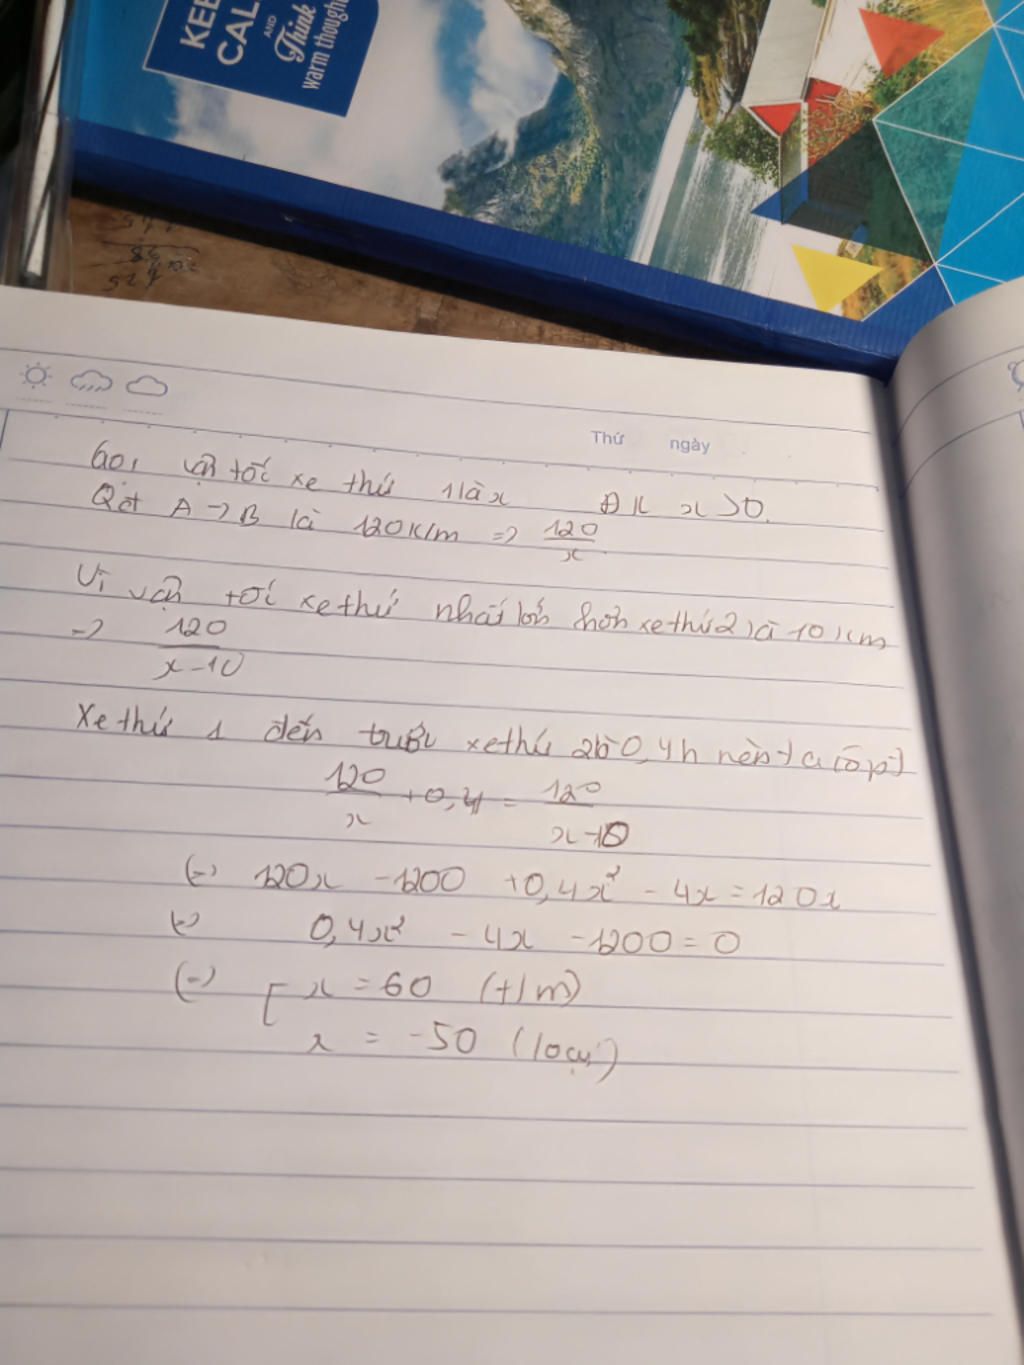 KEE
CAL
AND
Think
warm though
Thứ ngày
Gọi vận tốc xe thứ 1 là x ĐK x > 0.
Qđt A → B là 120 K/m => 120/x
Vì vận tốc xe thứ nhất lớn hơn xe thứ 2 là 10 km
=> 120/x-10
Xe thứ 1 đến trước xe thứ 2 là 0,4h nên ta có pt
120/x + 0,4 = 120/x-10
(=) 120x - 1200 + 0,4x² - 4x = 120x
(=) 0,4x² - 4x - 1200 = 0
(=) [ x = 60 (t/m)
x = -50 (loại)